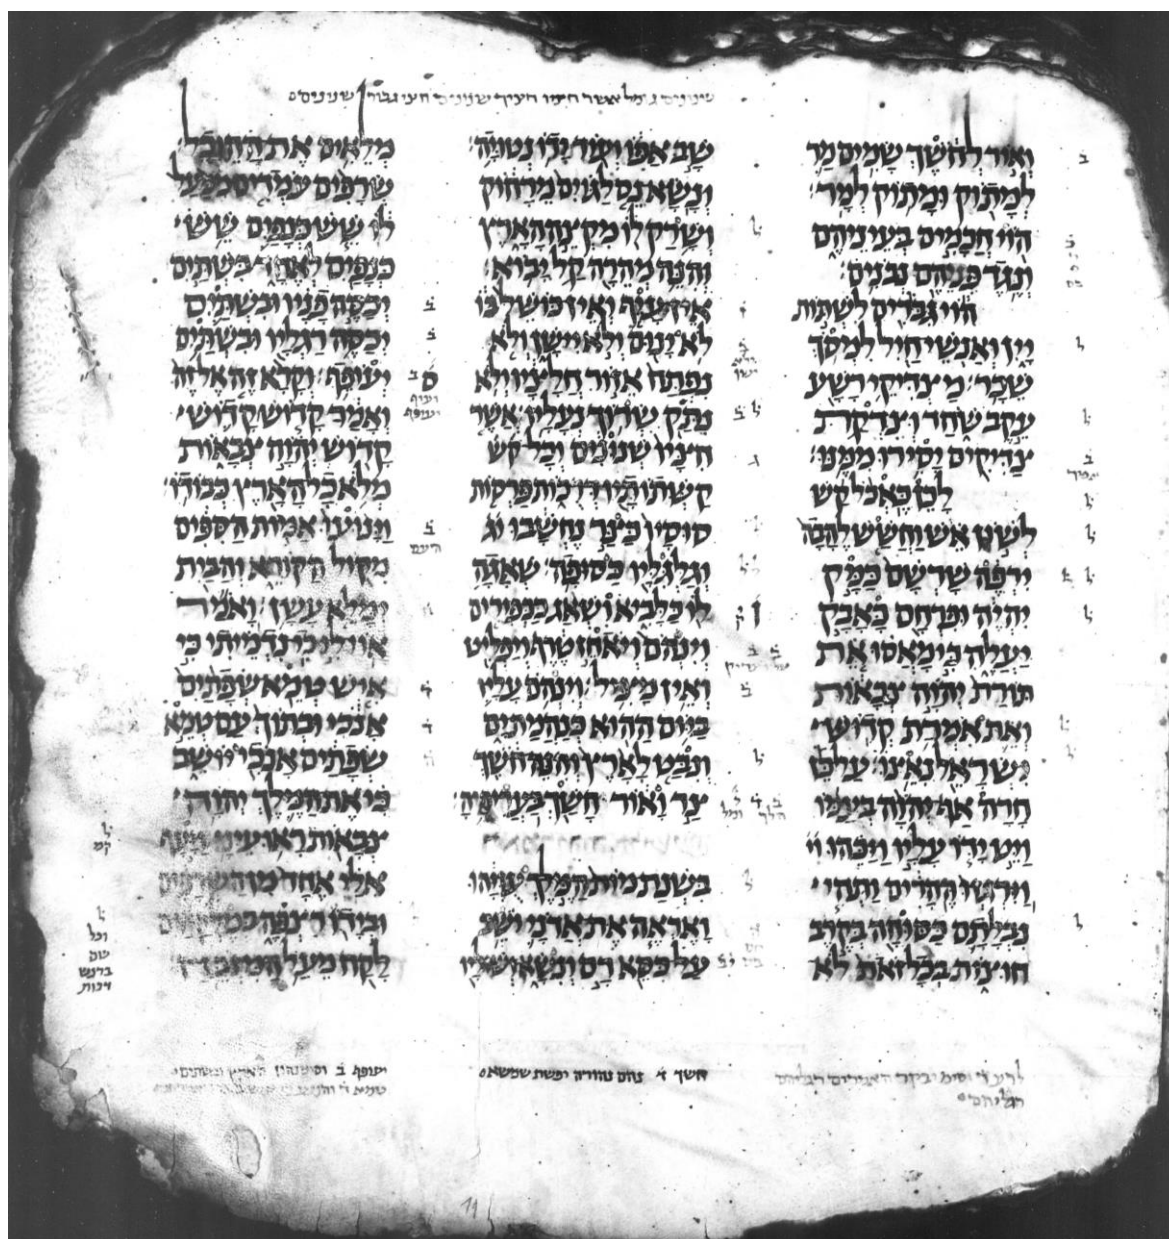 שנונים ג וכל אשר חציו חציך שנונים חצי גבור שנונים
ואור לחשך שמים מר
למתוק ומתוק למר׃
הוי חכמים בעיניהם
ונגד פניהם נבנים׃
הוי גבורים לשתות
יין ואנשי חיל למסך
שכר׃ מצדיקי רשע
עקב שחד וצדקת
צדיקים יסירו ממנו׃
לכן כאכל קש
לשון אש וחשש להבה
ירפה שרשם כמק
יהיה ופרחם כאבק
יעלה כי מאסו את
תורת יהוה צבאות
ואת אמרת קדוש
ישראל נאצו׃ על כן
חרה אף יהוה בעמו
ויט ידו עליו ויכהו
וירגזו ההרים ותהי
נבלתם כסוחה בקרב
חוצות בכל זאת לא
שב אפו ועוד ידו נטויה׃
ונשא נס לגוים מרחוק
ושרק לו מקצה הארץ
והנה מהרה קל יבוא׃
אין עיף ואין כושל בו
לא ינום ולא יישן ולא
נפתח אזור חלציו ולא
נתק שרוך נעליו׃ אשר
חציו שנונים וכל קש
קשתתיו דרכות פרסות
סוסיו כצר נחשבו וג
וגלגליו כסופה׃ שאגה
לו כלביא ושאג ככפירים
וינהם ויאחז טרף ויפליט
ואין מציל׃ וינהם עליו
ביום ההוא כנהמת ים
ונבט לארץ והנה חשך
צר ואור חשך בעריפיה׃
בשנת מות המלך עזיהו
ואראה את אדני ישב
על כסא רם ונשא ושוליו
מלאים את ההיכל׃
שרפים עמדים ממעל
לו שש כנפים שש
כנפים לאחד בשתים
יכסה פניו ובשתים
יכסה רגליו ובשתים
יעופף׃ וקרא זה אל זה
ואמר קדוש קדוש
קדוש יהוה צבאות
מלא כל הארץ כבודו׃
וינועו אמות הספים
מקול הקורא והבית
ימלא עשן׃ ואמר
אוי לי כי נדמיתי כי
איש טמא שפתים
אנכי ובתוך עם טמא
שפתים אנכי יושב
כי את המלך יהוה
צבאות ראו עיני׃ ויעף
אלי אחד מן השרפים
ובידו רצפה במלקחים
לקח מעל המזבח׃
חשך ד נהם נהורה יפשת שמשא